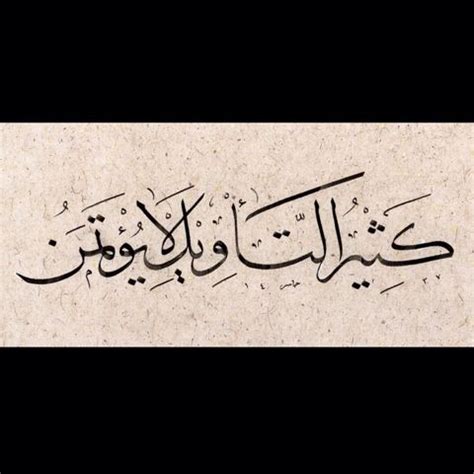 كَثِيرُ التَّأوِيلِ لَا يُؤْتَمَنُ